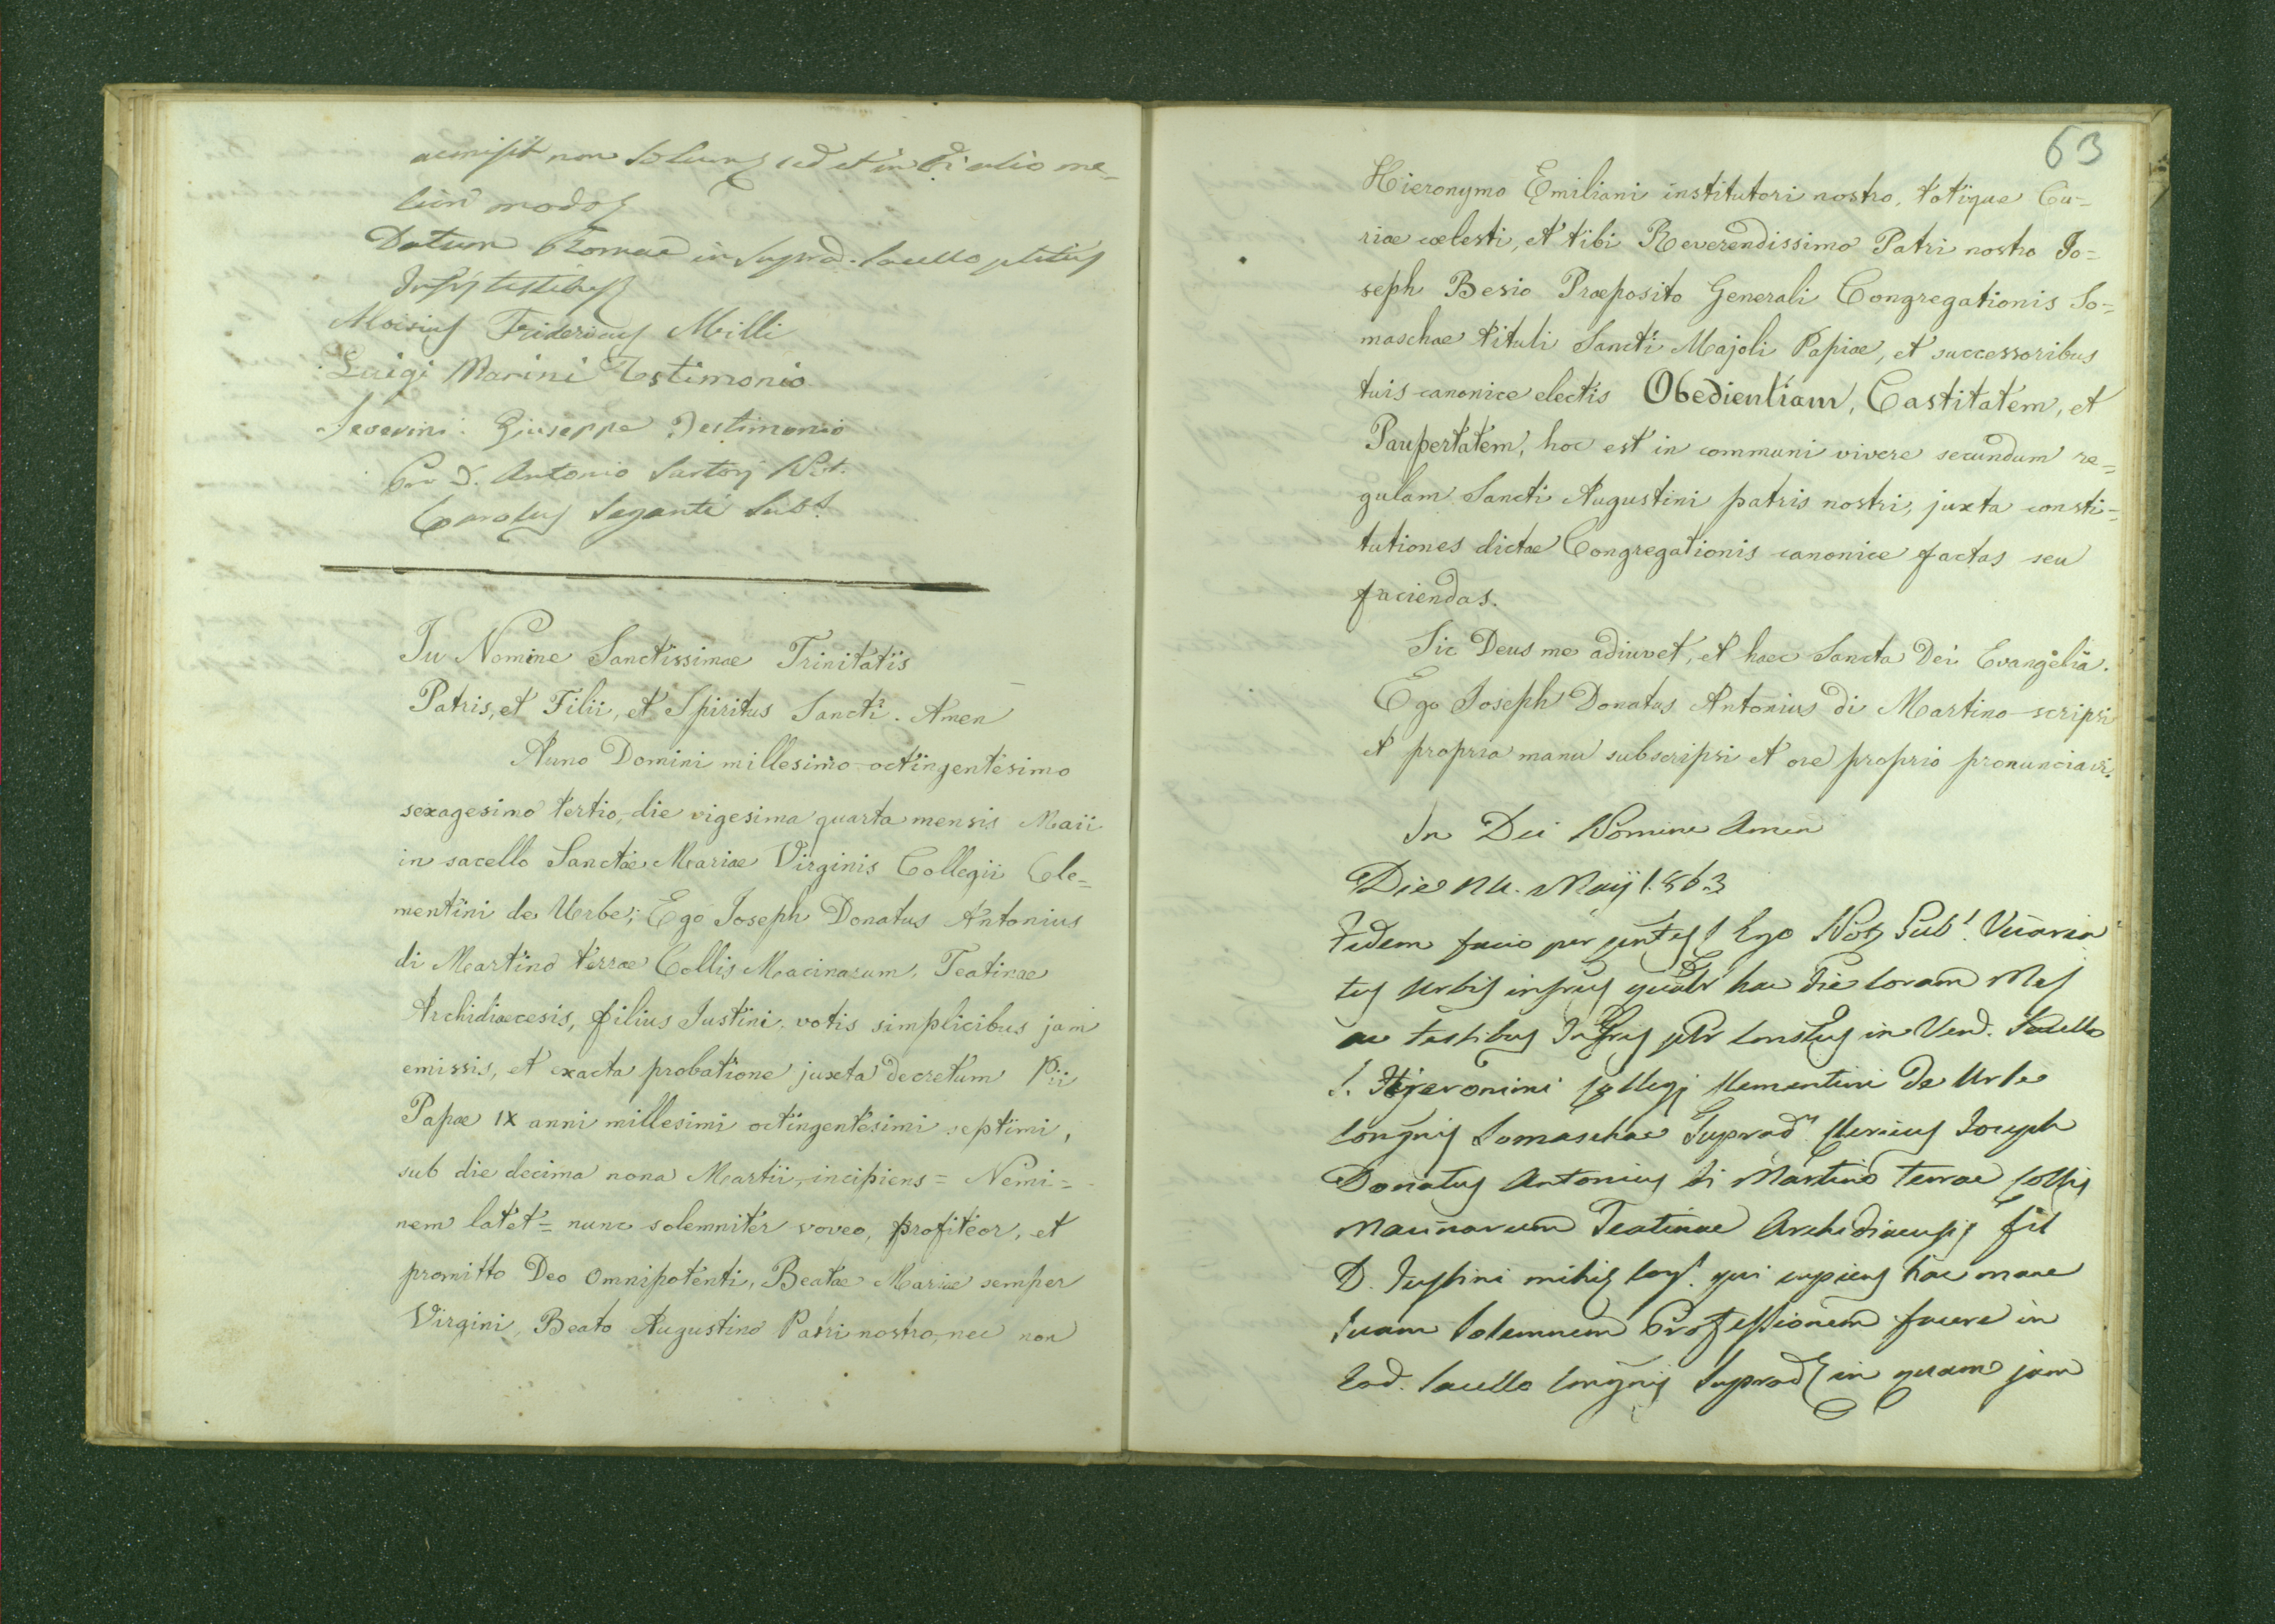 non solum sed et in alio me-
modo
Datum Romae in suprad. sacello
testibus
Aloisius Fridericus Milli
Luigi Marini Testimonio
Severini Giuseppe Testimonio
Pro D. Antonio Sartorj Not.
Carolus Seganti Subs.
In Nomine Sanctissimae Trinitatis
Patris, et Filii, et Spiritus Sancti. Amen
Anno Domini millesimo octingentesimo
sexagesimo tertio, die vigesima quarta mensis Maii
in sacello Sanctae Mariae Virginis Collegii Cle=
mentini de Urbe; Ego Joseph Donatus Antonius
di Martino terrae Collis Macinarum, Teatinae
Archidiaecesis, filius Justini, votis simplicibus jam
emissis, et exacta probatione juxta decretum Pii
Papae IX anni millesimi octingentesimi septimi,
sub die decima nona Martii, incipiens = Nemi=
nem latet = nunc solemniter voveo, profiteor, et
promitto Deo Omnipotenti, Beatae Mariae semper
Virgini, Beato Augustino Patri nostro, nec non
63
Hieronymo Emiliani institutori nostro, totique Cu=
riae coelesti, et tibi Reverendissimo Patri nostro Jo=
seph Besio Praeposito Generali Congregationis So=
maschae tituli Sancti Majoli Papiae, et successoribus
tuis canonice electis Obedientiam, Castitatem, et
Paupertatem, hoc est in communi vivere secundum re=
gulam Sancti Augustini patris nostri, juxta consti=
tutiones dictae Congregationis canonice factas seu
faciendas.
Sic Deus me adiuvet, et haec Sancta Dei Evangelia.
Ego Joseph Donatus Antonius di Martino scripsi
et propria manu subscripsi et ore proprio pronunciavi.
In Dei Nomine Amen
Die 24. Maij 1863
Fidem facio per Ego Not. Pub. Vicaria
tus Urbis hac Die Coram Me
ac testibus in Ven. Sacello
S. Hieronimi Collegj Clementini de Urbe
Congnis Somaschae Suprad. Clericus Joseph
Donatus Antonius di Martino Terrae Collis
Macinarum Teatinae Archidiaecesis fil
D. Justini mihi cog. qui cupiens hac mane
Suam Solemnem Professionem facere in
Eod. Sacello Congnis Suprad. in quam jam